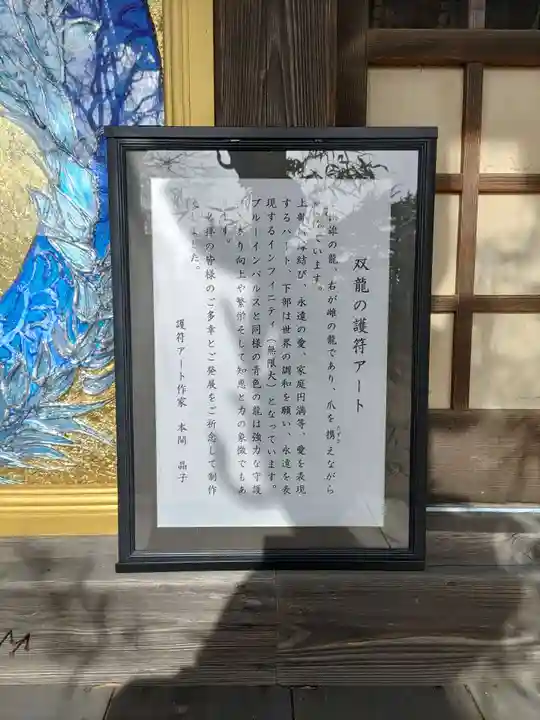 双龍の護符アート
雄の龍、右が雌の龍であり、爪を携えながら
たずさ
ています。
結び、永遠の愛、家庭円満等、愛を表現
するハート、下部は世界の調和を願い、永遠を表
現するインフィニティ(無限大)となっています。
ブルーインパルスと同様の青色の龍は強力な守護
向上や繁栄そして知恵と力の象徴でもあ
ます。
拝の皆様のご多幸とご発展をご祈念して制作
しました。
護符アート作家 本間 晶子